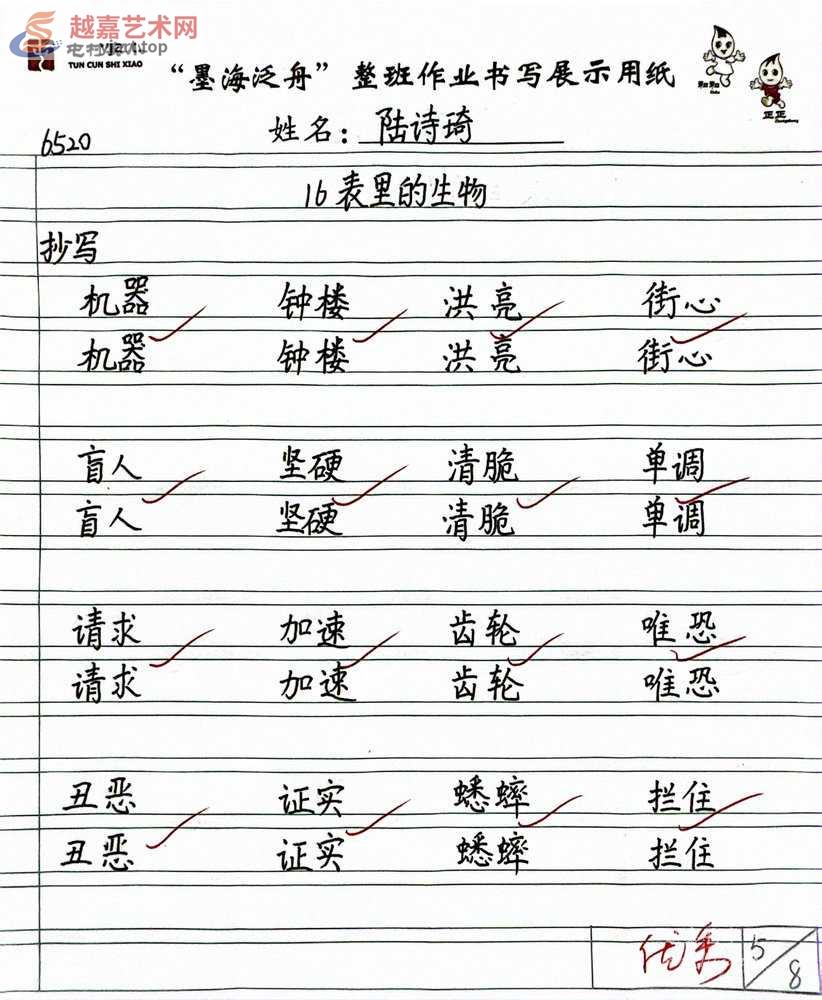 越嘉艺术网
TUN CUN SHI XIAO
“墨海泛舟”整班作业书写展示用纸
和和
正正
6520
姓名：陆诗琦
16表里的生物
抄写
机器 钟楼 洪亮 街心
机器 钟楼 洪亮 街心
盲人 坚硬 清脆 单调
盲人 坚硬 清脆 单调
请求 加速 齿轮 唯恐
请求 加速 齿轮 唯恐
丑恶 证实 蟋蟀 拦住
丑恶 证实 蟋蟀 拦住
优秀 5/8